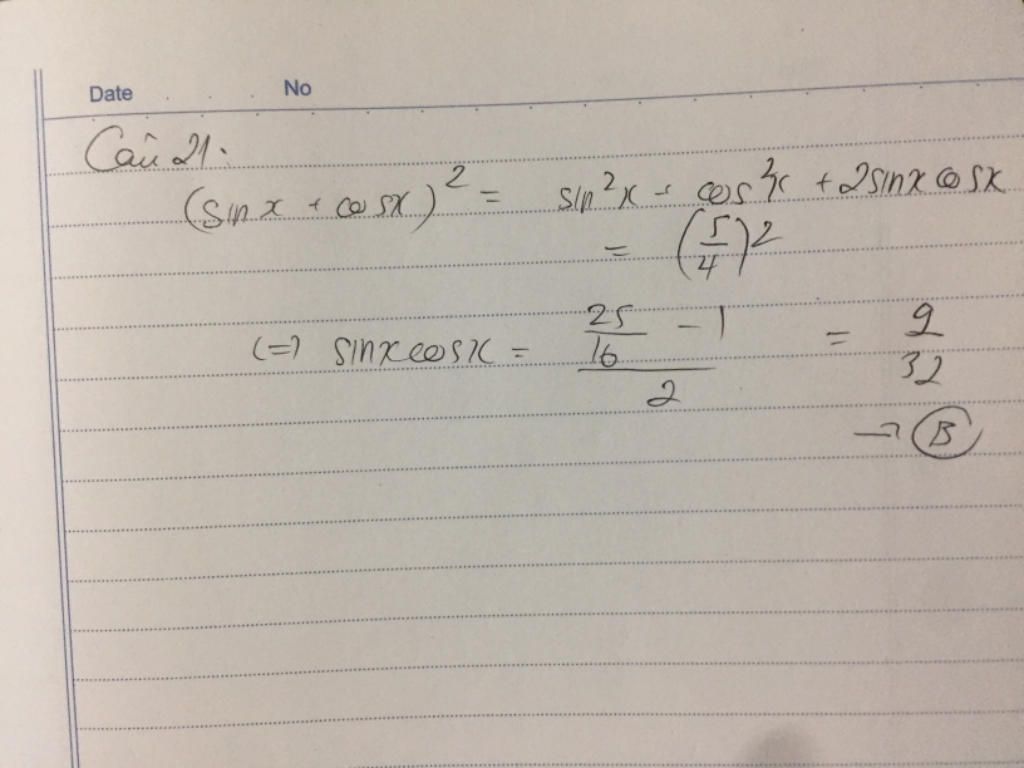 Date No
Câu 21:
(sin x + cosx)² = sin²x + cos²x + 2sinx cosx
= (5/4)²
(=) sinxcosx = (25/16 - 1)/2 = 9/32
→ B